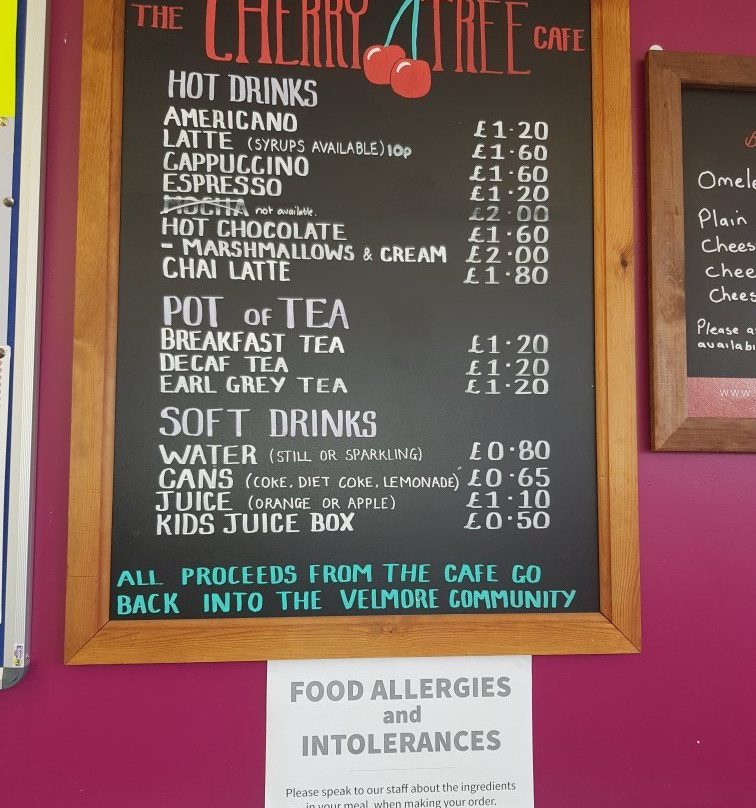 THE CHERRY TREE CAFE
HOT DRINKS
AMERICANO £1·20
LATTE (SYRUPS AVAILABLE) 10p £1·60
CAPPUCCINO £1·60
ESPRESSO £1·20
MOCHA not available. £2·00
HOT CHOCOLATE £1·60
- MARSHMALLOWS & CREAM £2·00
CHAI LATTE £1·80
POT OF TEA
BREAKFAST TEA £1·20
DECAF TEA £1·20
EARL GREY TEA £1·20
SOFT DRINKS
WATER (STILL OR SPARKLING) £0·80
CANS (COKE, DIET COKE, LEMONADE) £0·65
JUICE (ORANGE OR APPLE) £1·10
KIDS JUICE BOX £0·50
ALL PROCEEDS FROM THE CAFE GO
BACK INTO THE VELMORE COMMUNITY
FOOD ALLERGIES
and
INTOLERANCES
Please speak to our staff about the ingredients
in your meal, when making your order.
Plain
Please
www.